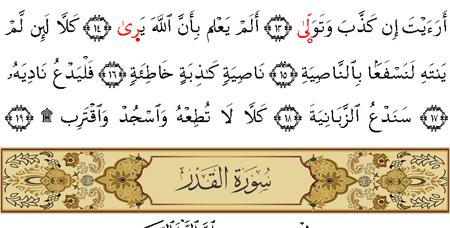 أَرَءَيْتَ إِن كَذَّبَ وَتَوَلّىٰ ﴿١٣﴾ أَلَمْ يَعْلَم بِأَنَّ اللَّهَ يَرىٰ ﴿١٤﴾ كَلَّا لَئِن لَّمْ
يَنتَهِ لَنَسْفَعَۢا بِالنَّاصِيَةِ ﴿١٥﴾ نَاصِيَةٍ كَـٰذِبَةٍ خَاطِئَةٍ ﴿١٦﴾ فَلْيَدْعُ نَادِيَهُۥ
﴿١٧﴾ سَنَدْعُ الزَّبَانِيَةَ ﴿١٨﴾ كَلَّا لَا تُطِعْهُ وَاسْجُدْ وَاقْتَرِب ۩ ﴿١٩﴾
سُورَةُ القَدْرِ